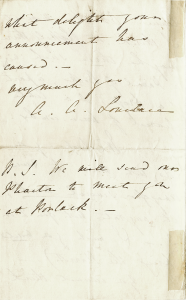 what delight your
announcement has
caused. —
very much yrs
A. A. Lovelace
P.S. We will send our
Phaeton to meet you
at Porlock. —